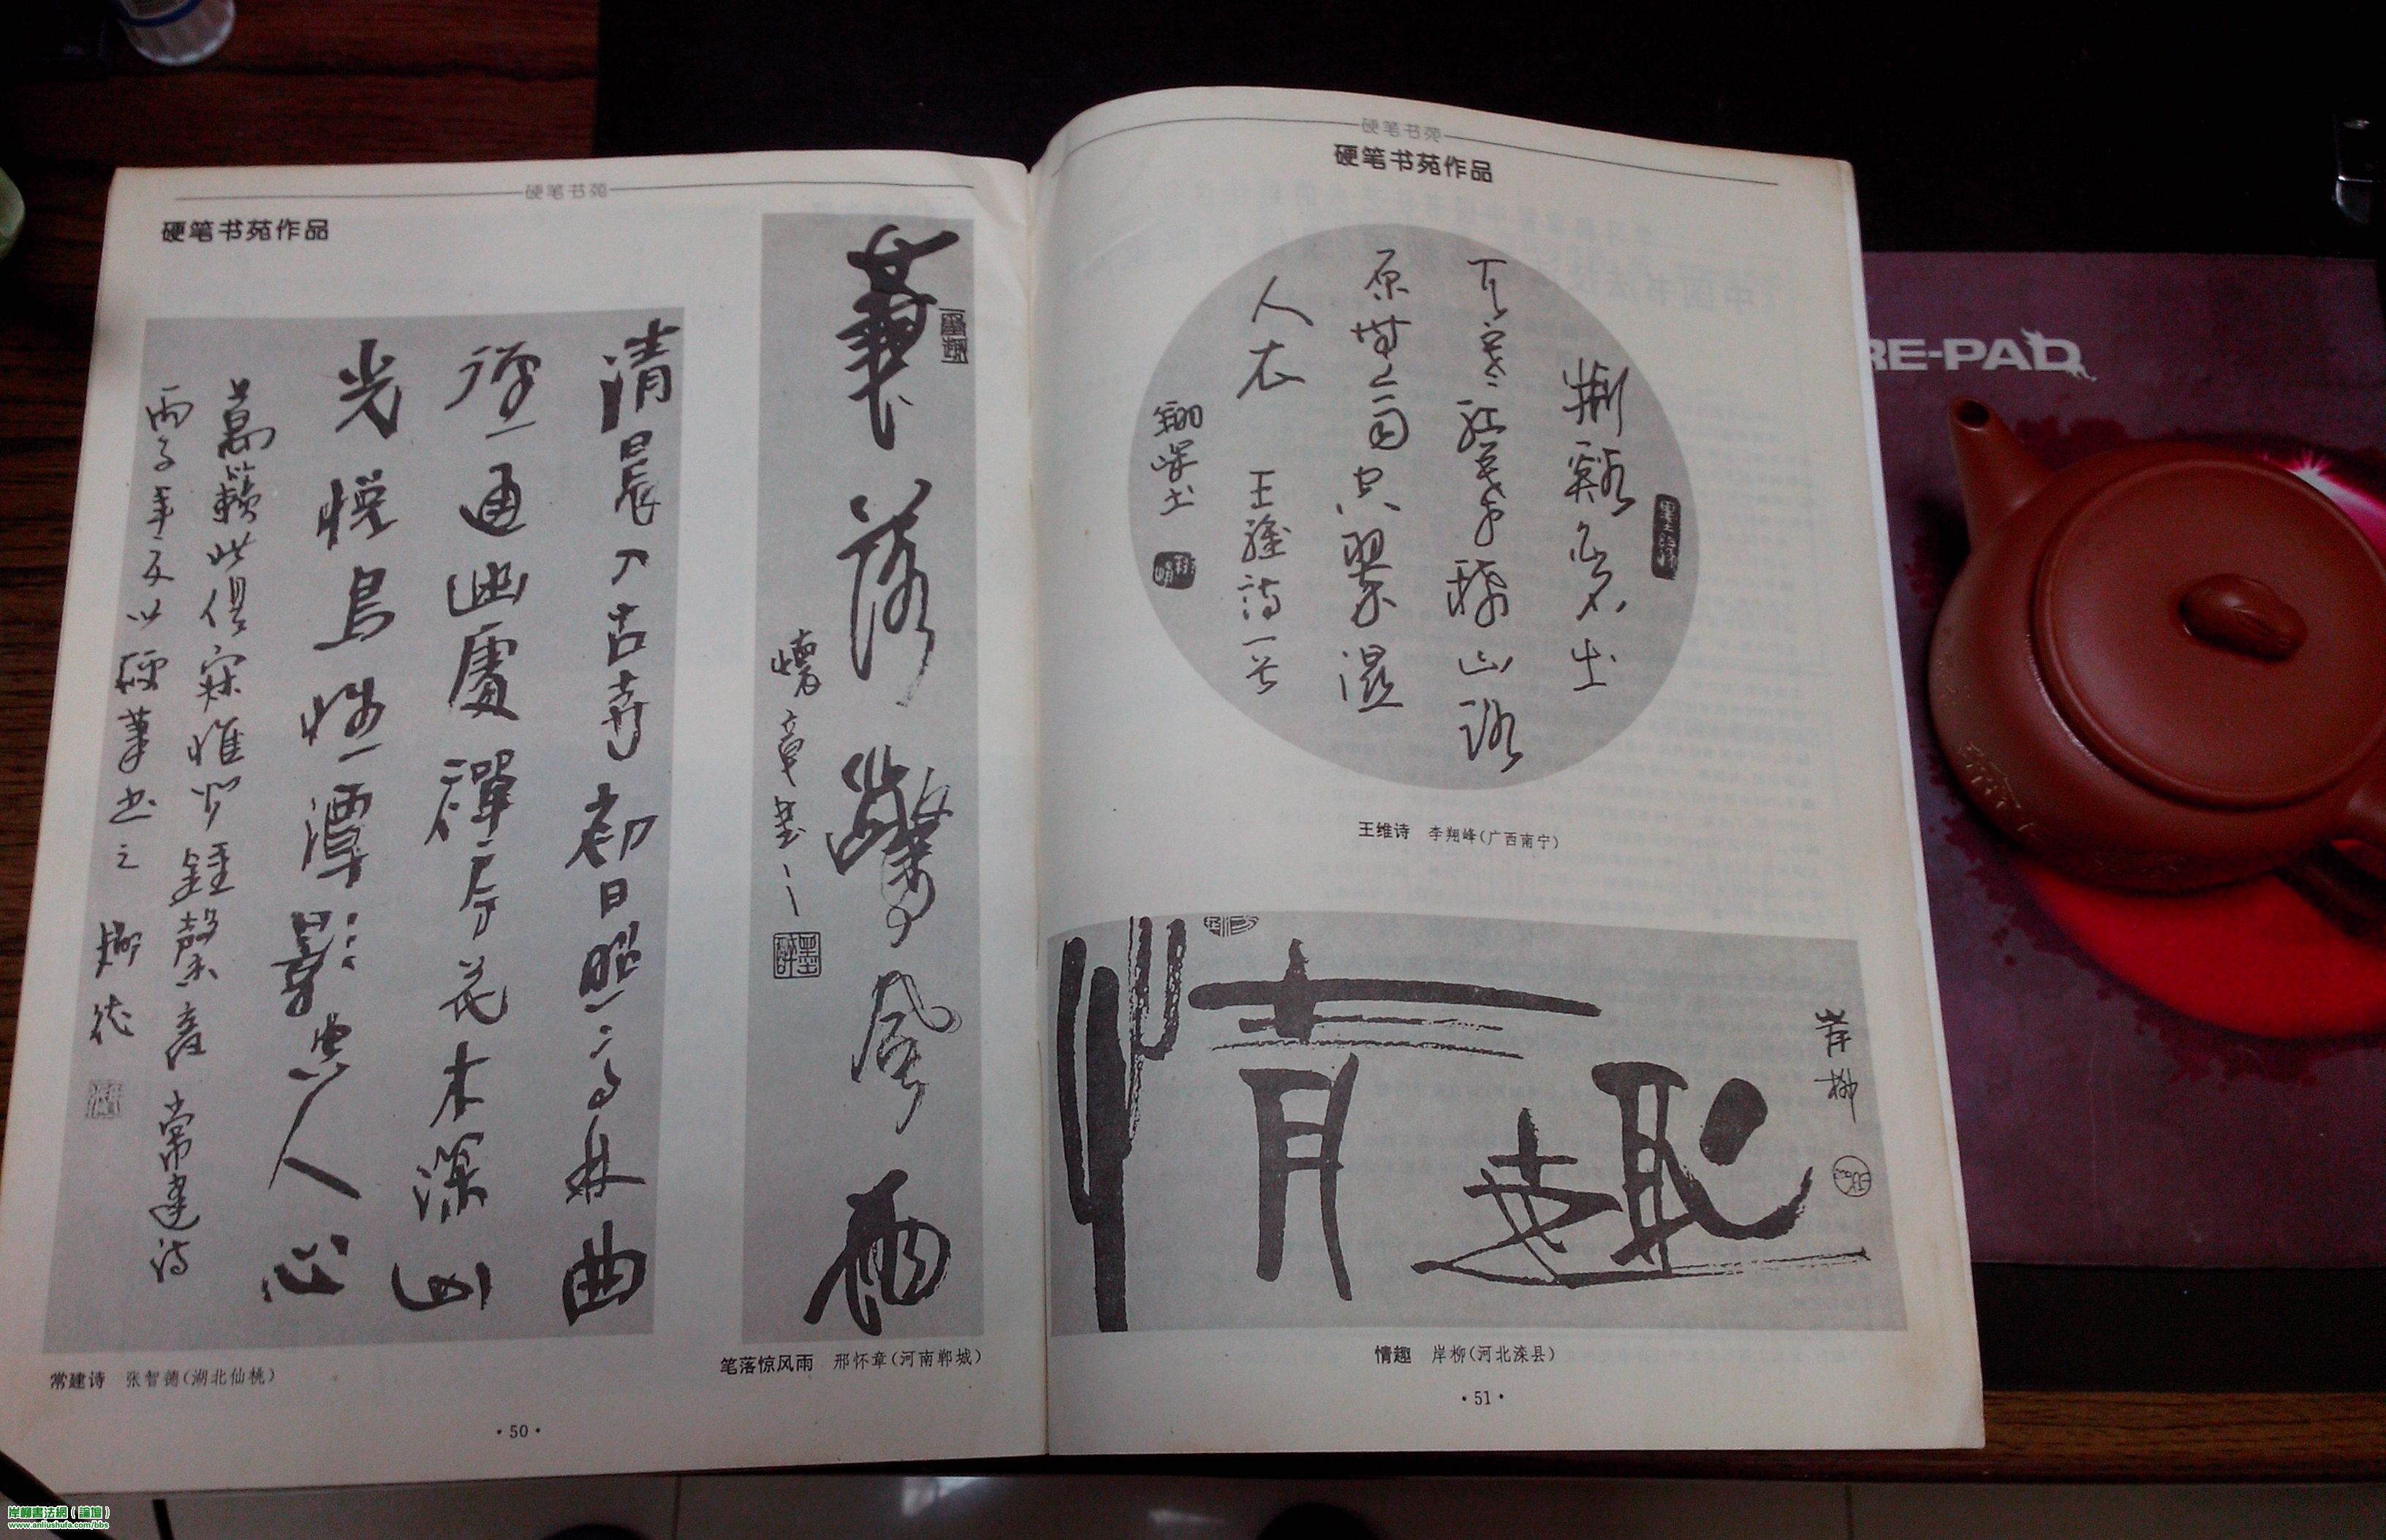 硬笔书苑
硬笔书苑作品
清晨入古寺初日照高林曲
徑通幽處禪房花木深山
光悦鳥性潭影空人心
萬籟此俱寂惟闻鍾磬音 常建诗
丙子年夏以硬筆书之
常建诗 张智德(湖北仙桃)
墨趣
筆落驚風雨
懷章书
墨醉
笔落惊风雨 邢怀章(河南郸城)
·50·
硬笔书苑
硬笔书苑作品
荆谿白石出
天寒红葉稀山路
原無雨空翠湿
人衣 王維诗一首
翔峰书
王维诗 李翔峰(广西南宁)
情趣
岸柳
情趣 岸柳(河北滦县)
·51·
RE-PAD
岸柳書法網(論壇)
www.anliushufa.com/bbs